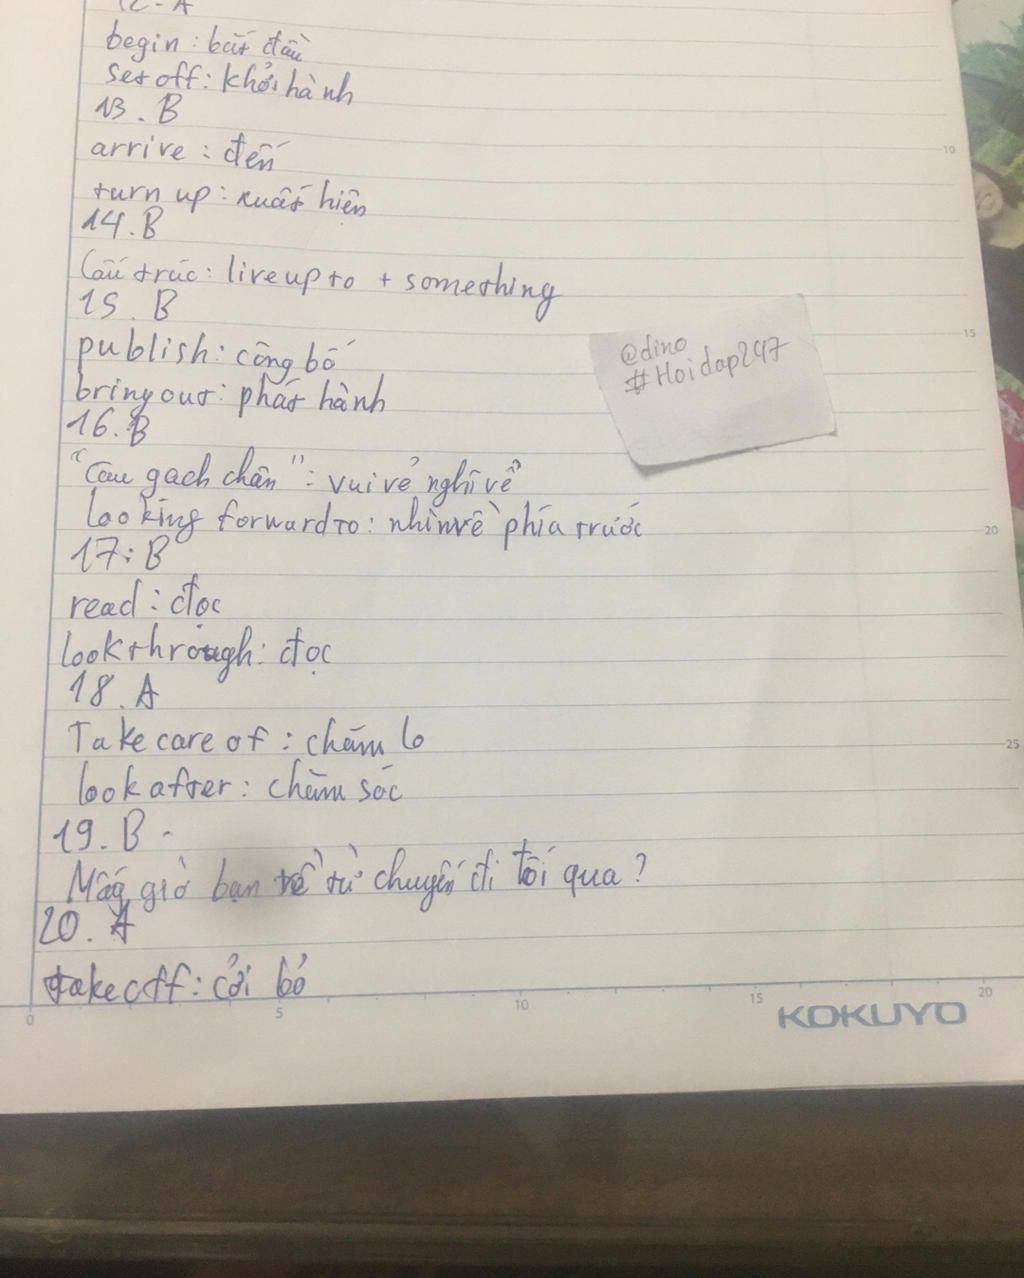 12 - A
begin : bắt đầu
set off : khởi hành
13. B
arrive : đến
turn up : xuất hiện
14. B
Cấu trúc : live up to + something
15. B
publish : công bố
bring out : phát hành
16. B
"Câu gạch chân" : vui vẻ nghĩ về
looking forward to : nhìn về phía trước
17 : B
read : đọc
look through : đọc
18. A
Take care of : chăm lo
look after : chăm sóc
19. B -
Mấy giờ bạn về từ chuyến đi tối qua ?
20. A
take off : cởi bỏ
@dino
#Hoidap247
10
15
20
25
0 5 10 15 20
KOKUYO